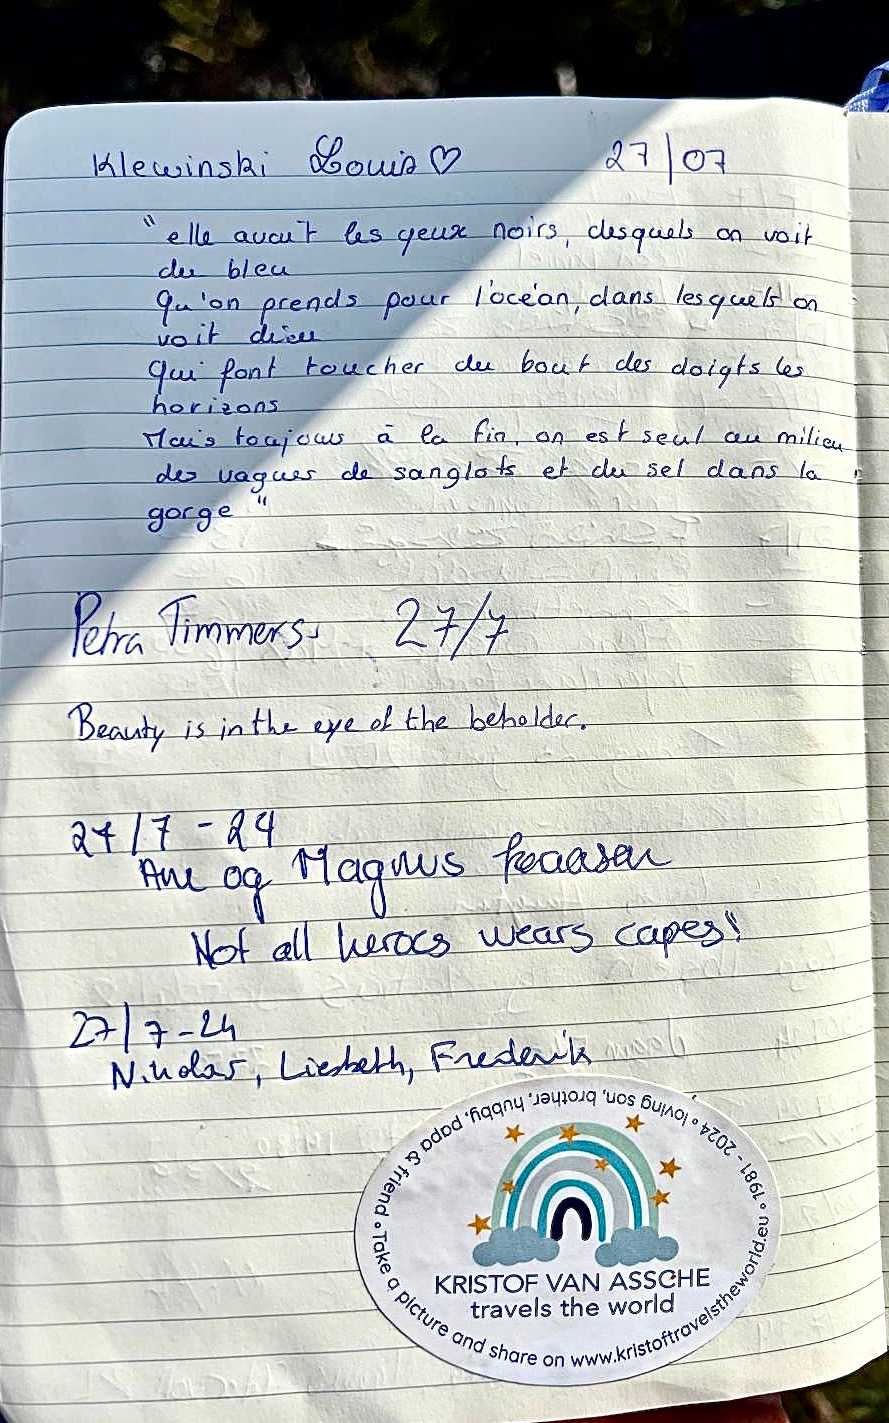 Klewinski Louis ♡ 27/07
"elle avait les yeux noirs, desquels on voit
du bleu
Qu'on prends pour l'océan, dans lesquels on
voit dieu
Qui font toucher du bout des doigts les
horizons
Mais toujours à la fin, on est seul au milieu
des vagues de sanglots et du sel dans la
gorge"
Petra Timmers. 27/7
Beauty is in the eye of the beholder.
27/7 - 24
og Magnus
Not all heroes wears capes!
27/7-24
Nikolas, Liesbeth, Frederik
1981 - 2024 • loving son, brother, hubby, papa & friend • Take a picture and share on www.kristoftravelstheworld.eu •
KRISTOF VAN ASSCHE
travels the world